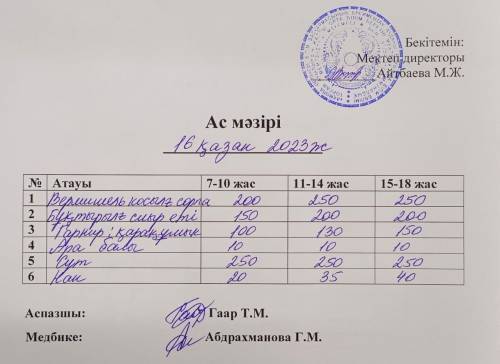 Бекітемін:
Мектеп директоры
Айтбаева М.Ж.
Ас мәзірі
16 қазан 2023ж
№ Атауы 7-10 жас 11-14 жас 15-18 жас
1 Вермишель қосылғ сорпа 200 250 250
2 Бұқтырылғ сиыр еті 150 200 200
3 Гарнир: қарақұмық 100 130 150
4 Ара балы 10 10 10
5 Сүт 250 250 250
6 Нан 20 35 40
Аспазшы: Гаар Т.М.
Медбике: Абдрахманова Г.М.